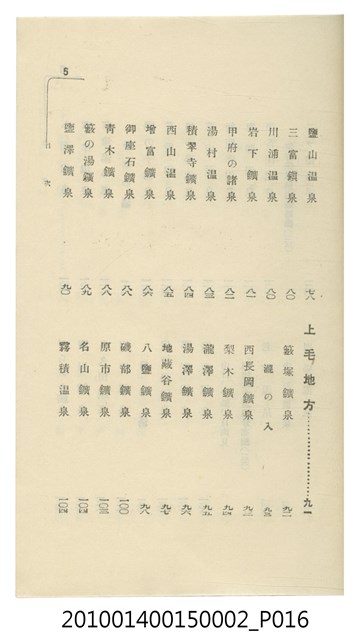 鹽山溫泉 七八
三富鑛泉 八〇
川浦溫泉 八〇
岩下鑛泉 八一
甲府の諸泉 八二
湯村溫泉 八三
積翠寺鑛泉 八四
西山溫泉 八五
增富鑛泉 八六
御座石鑛泉 八八
靑木鑛泉 八八
籔の湯鑛泉 八九
鹽澤鑛泉 九〇
上毛地方…………九一
籔塚鑛泉 九二
瀧の入 九三
西長岡鑛泉 九三
梨木鑛泉 九四
瀧澤鑛泉 九五
湯澤鑛泉 九六
地藏谷鑛泉 九七
八鹽鑛泉 九八
磯部鑛泉 一〇〇
原市鑛泉 一〇三
名山鑛泉 一〇四
霧積溫泉 一〇四
目次
5
201001400150002_P016